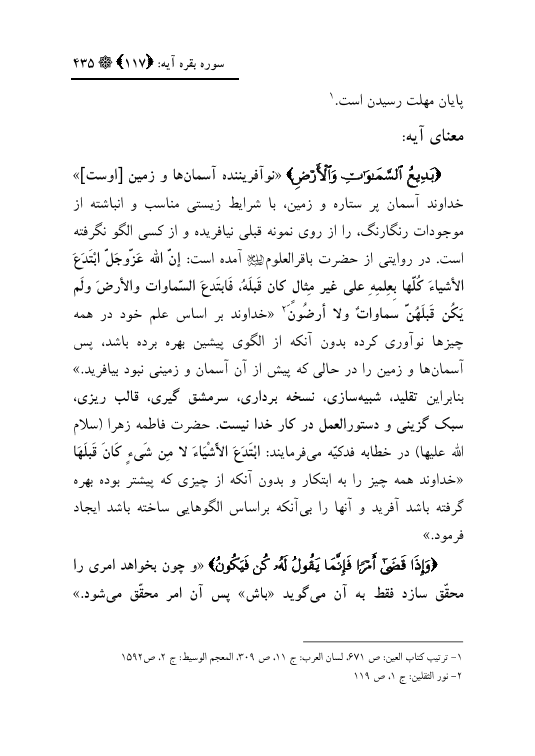 سوره بقره آیه: ﴿۱۱۷﴾ ۴۳۵
پایان مهلت رسیدن است.۱
معنای آیه:
﴿بَدِيعُ ٱلسَّمَٰوَٰتِ وَٱلۡأَرۡضِ﴾ «نوآفریننده آسمان‌ها و زمین [اوست]»
خداوند آسمان پر ستاره و زمین، با شرایط زیستی مناسب و انباشته از
موجودات رنگارنگ، را از روی نمونه قبلی نیافریده و از کسی الگو نگرفته
است. در روایتی از حضرت باقرالعلوم آمده است: إنّ الله عَزّوجَلّ ابْتَدَعَ
الأشیاءَ کُلَّها بِعِلمِهِ علی غیر مِثالٍ کان قَبلَهُ، فَابتَدعَ السّماوات والأرضَ ولَم
یَکُن قَبلَهُنّ سماواتٌ ولا أرضُونَ۲ «خداوند بر اساس علم خود در همه
چیزها نوآوری کرده بدون آنکه از الگوی پیشین بهره برده باشد، پس
آسمان‌ها و زمین را در حالی که پیش از آن آسمان و زمینی نبود بیافرید.»
بنابراین تقلید، شبیه‌سازی، نسخه برداری، سرمشق گیری، قالب ریزی،
سبک گزینی و دستورالعمل در کار خدا نیست. حضرت فاطمه زهرا (سلام
الله علیها) در خطابه فدکیّه می‌فرمایند: ابْتَدَعَ الأَشْیَاءَ لا مِن شَیءٍ کَانَ قَبلَهَا
«خداوند همه چیز را به ابتکار و بدون آنکه از چیزی که پیشتر بوده بهره
گرفته باشد آفرید و آنها را بی‌آنکه براساس الگوهایی ساخته باشد ایجاد
فرمود.»
﴿وَإِذَا قَضَىٰٓ أَمۡرٗا فَإِنَّمَا يَقُولُ لَهُۥ كُن فَيَكُونُ﴾ «و چون بخواهد امری را
محقّق سازد فقط به آن می‌گوید «باش» پس آن امر محقّق می‌شود.»
۱- ترتیب کتاب العین: ص ۶۷۱، لسان العرب: ج ۱۱، ص ۳۰۹، المعجم الوسیط: ج ۲، ص۱۵۹۲
۲- نور الثقلین: ج ۱، ص ۱۱۹